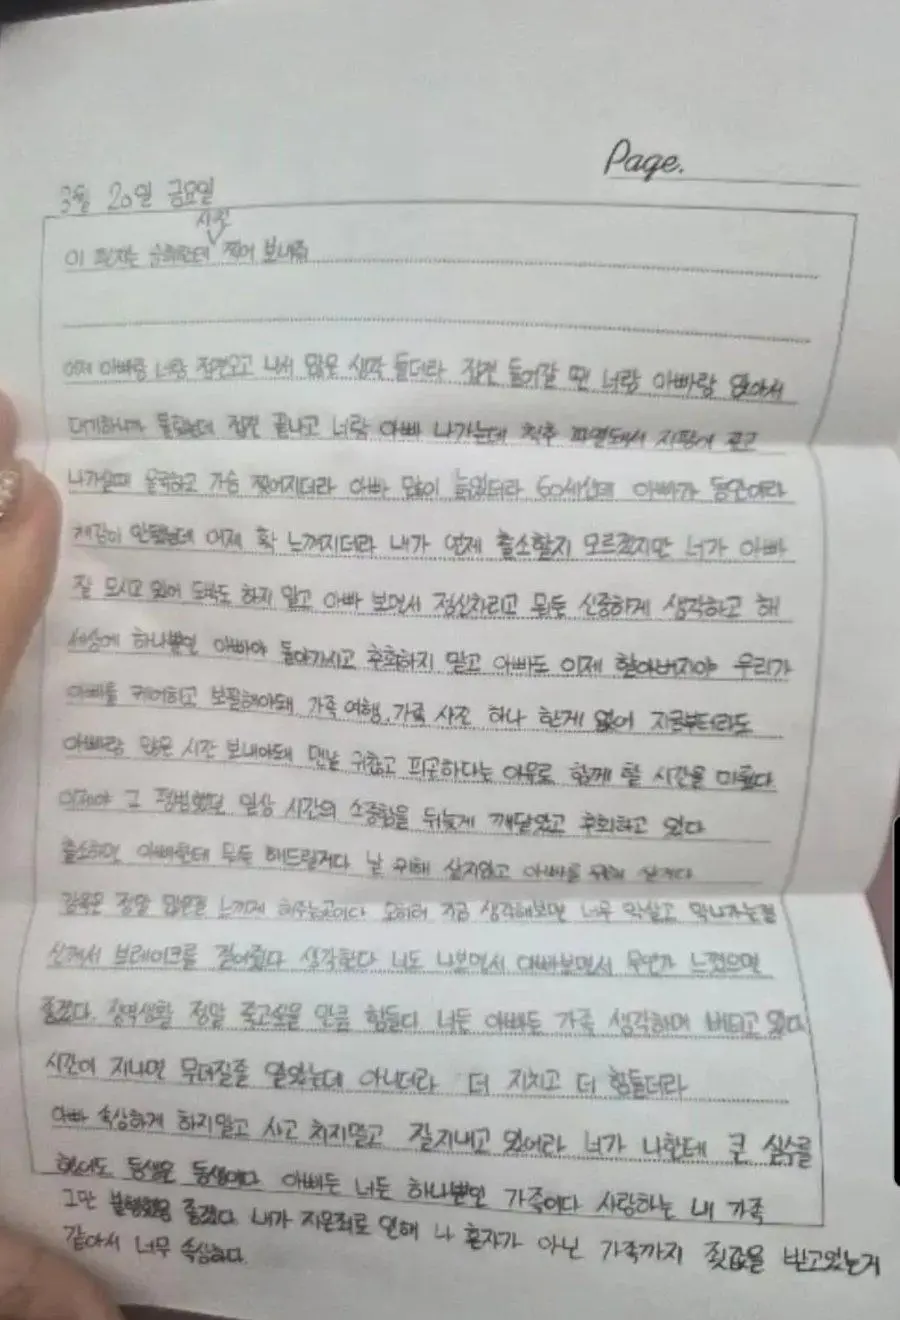 Page.
3월 20일 금요일
사진
이 편지는 한테 찍어 보내줘
어제 아빠랑 너랑 접견하고 나서 많은 생각 들더라 접견 들어갈 땐 너랑 아빠랑 앉아서
대기하니까 몰랐는데 접견 끝나고 너랑 아빠 나가는데 척추 파열돼서 지팡이 짚고
나가실때 울컥하고 가슴 찢어지더라 아빠 많이 늙었더라 60세인데 아빠가 동안이라
체감이 안됐는데 어제 확 느껴지더라 내가 언제 출소할지 모르겠지만 너가 아빠
잘 모시고 있어 도박도 하지 말고 아빠 보면서 정신차리고 뭐든 신중하게 생각하고 해
세상에 하나뿐인 아빠야 돌아가시고 후회하지 말고 아빠도 이제 할아버지야 우리가
아빠를 케어하고 보필해야돼 가족 여행, 가족 사진 하나 한게 없어 지금부터라도
아빠랑 많은 시간 보내야돼 맨날 귀찮고 피곤하다는 이유로 함께 할 시간을 미뤘다
이제야 그 평범했던 일상 시간의 소중함을 뒤늦게 깨달았고 후회하고 있다
출소하면 아빠한테 모두 해드릴거다 날 위해 살지않고 아빠를 위해 살거다
감옥은 정말 많은걸 느끼게 해주는곳이다 오히려 지금 생각해보면 너무 막살고 막나가는걸
신께서 브레이크를 걸어줬다 생각한다 너도 나보면서 아빠보면서 무언가 느꼈으면
좋겠다. 징역생활 정말 죽고싶을 만큼 힘들다 너든 아빠든 가족 생각하며 버티고 있다
시간이 지나면 무뎌질줄 알았는데 아니더라 더 지치고 더 힘들더라
아빠 속상하게 하지말고 사고 치지말고 잘지내고 있어라 너가 나한테 큰 실수를
했어도 동생은 동생이다 아빠든 너든 하나뿐인 가족이다 사랑하는 내 가족
그만 불행했음 좋겠다 내가 지은죄로 인해 나 혼자가 아닌 가족까지 죗값을 받고있는거
같아서 너무 속상하다.